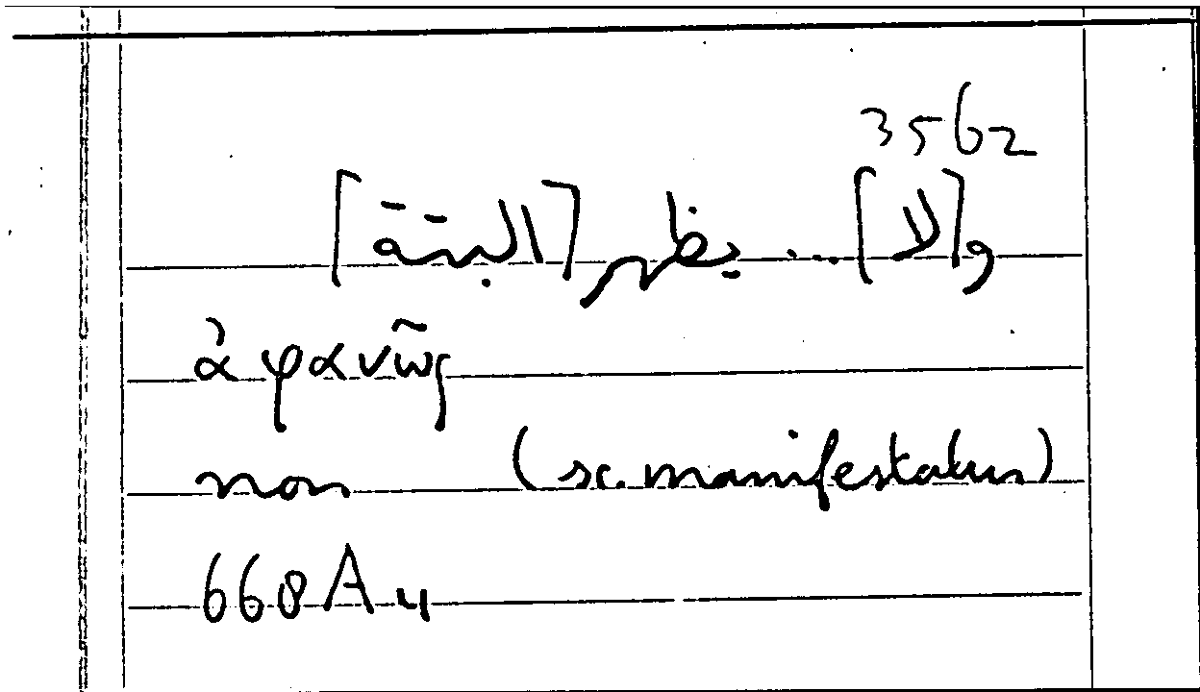 3562
و[لا] ... يظهر [البتّة]
ἀφανῶς
non (sc. manifestatur)
668A4